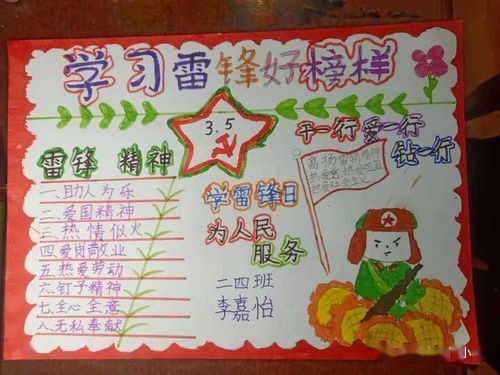 学习雷锋好榜样
3.5
干一行爱一行
钻一行
雷锋 精神
一、助人为乐
二、爱国精神
三、热情似火
四、爱岗敬业
五、热爱劳动
六、钉子精神
七、全心全意
八、无私奉献
学雷锋日
为人民
服务
二四班
李嘉怡
高扬雷锋精神